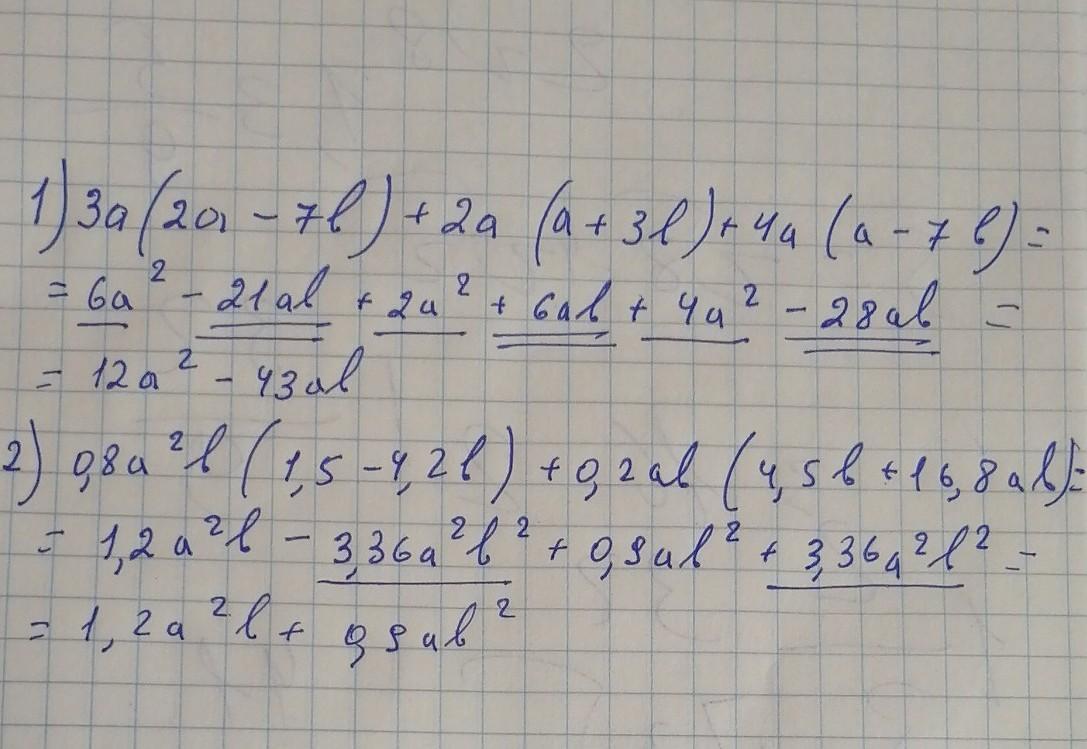 1) 3a(2a - 7b) + 2a (a + 3b) + 4a (a - 7b) =
= 6a² - 21ab + 2a² + 6ab + 4a² - 28ab =
= 12a² - 43ab
2) 0,8a²b (1,5 - 4,2b) + 0,2ab (4,5b + 16,8ab) =
= 1,2a²b - 3,36a²b² + 0,9ab² + 3,36a²b² =
= 1,2a²b + 0,9ab²